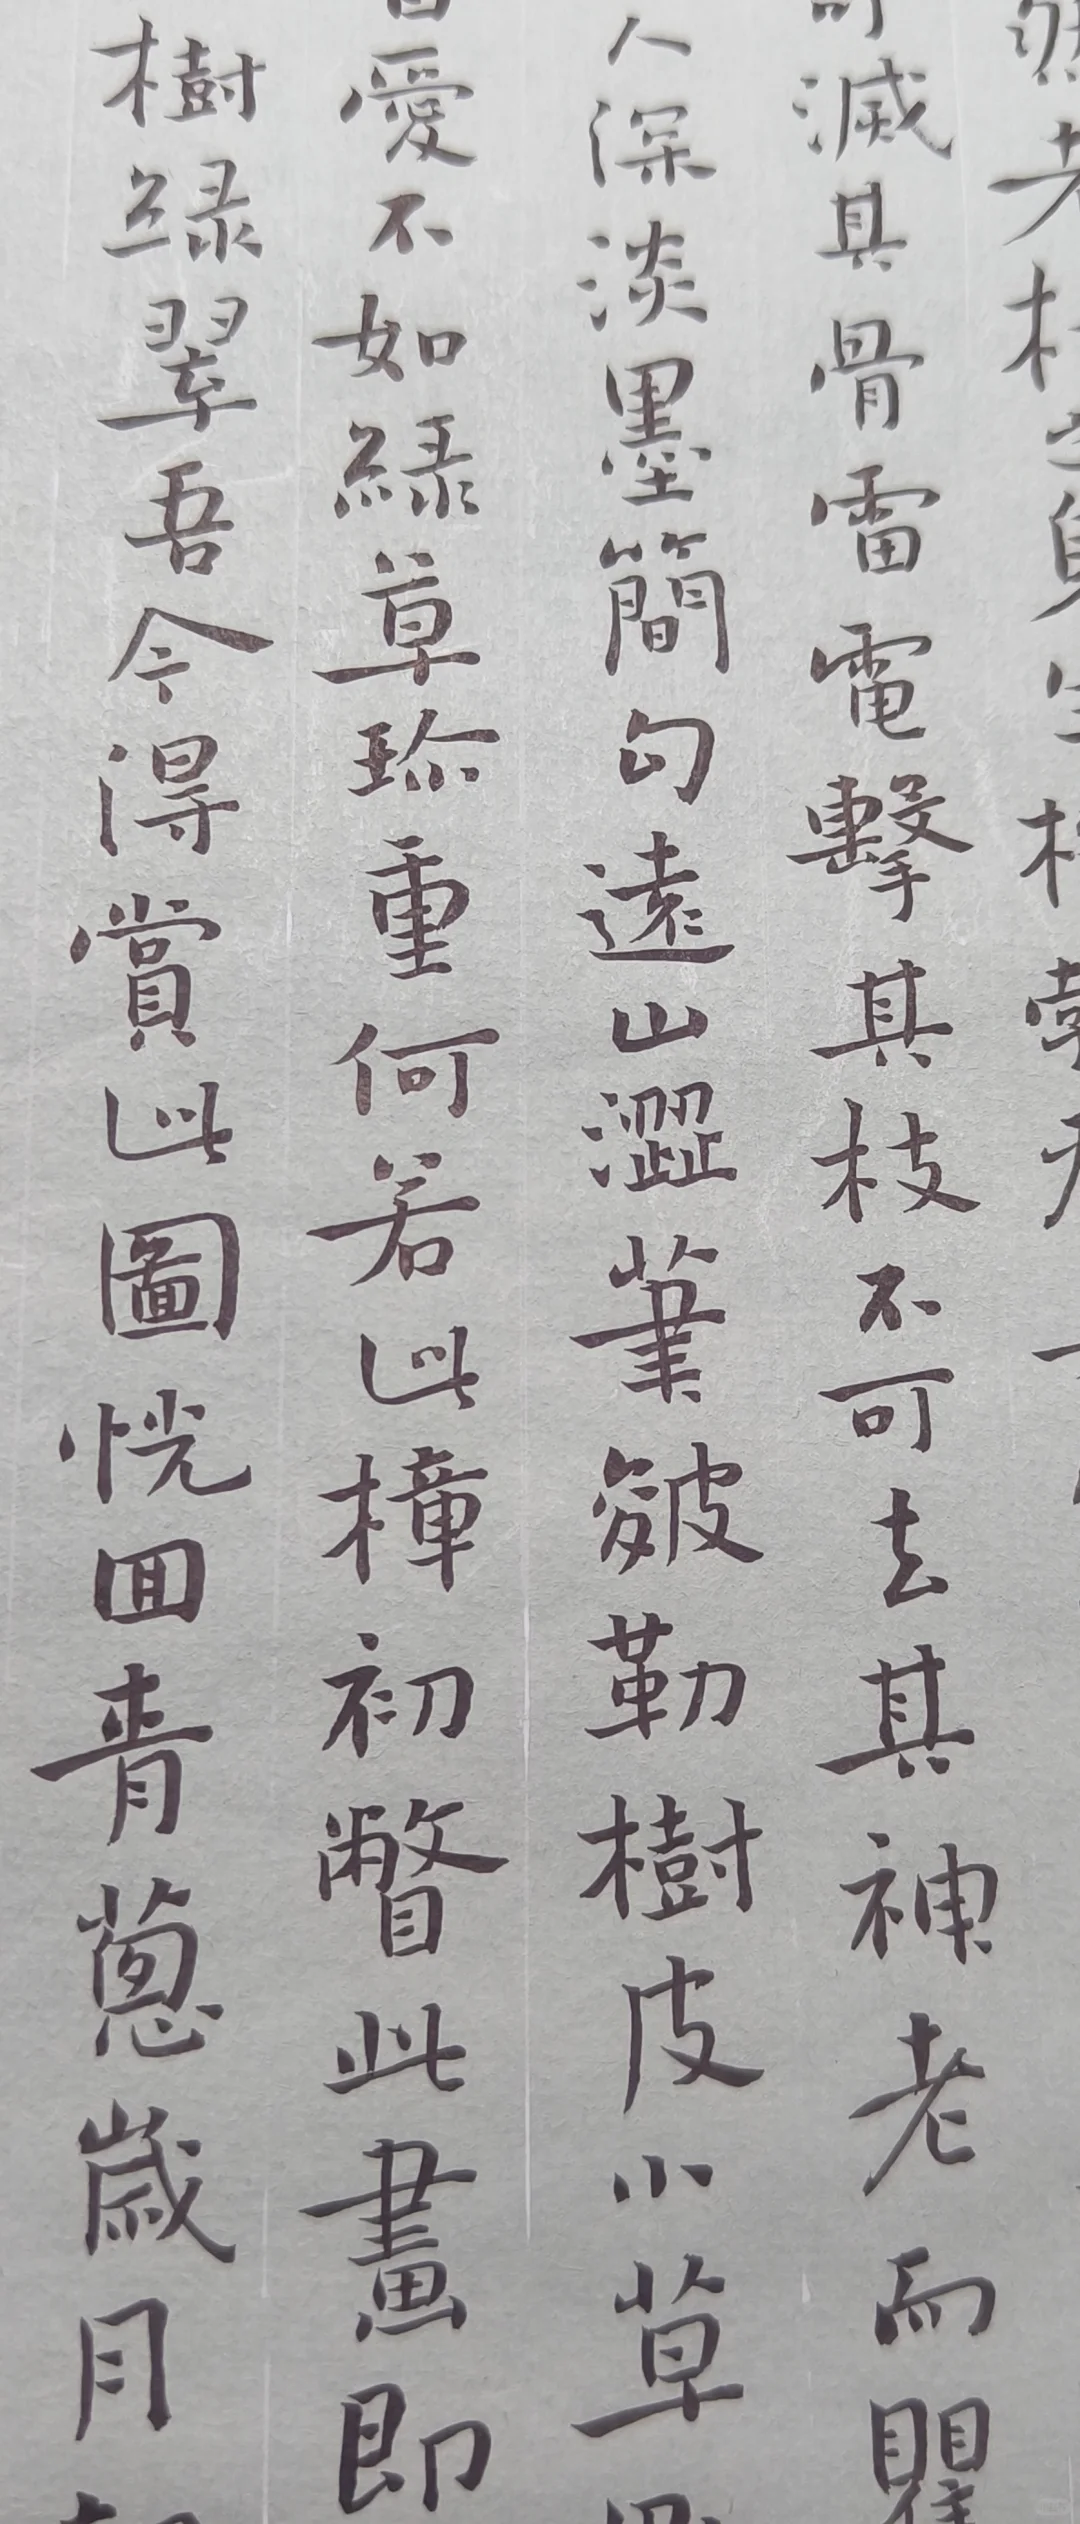 老
滅其骨雷電擊其枝不可去其神老而
人深淡墨簡勾遠山澀筆皴勒樹皮小草
愛不如綠草珍重何若此樟初瞥此畫即
樹綠翠吾今得賞此圖恍回青蔥歲月